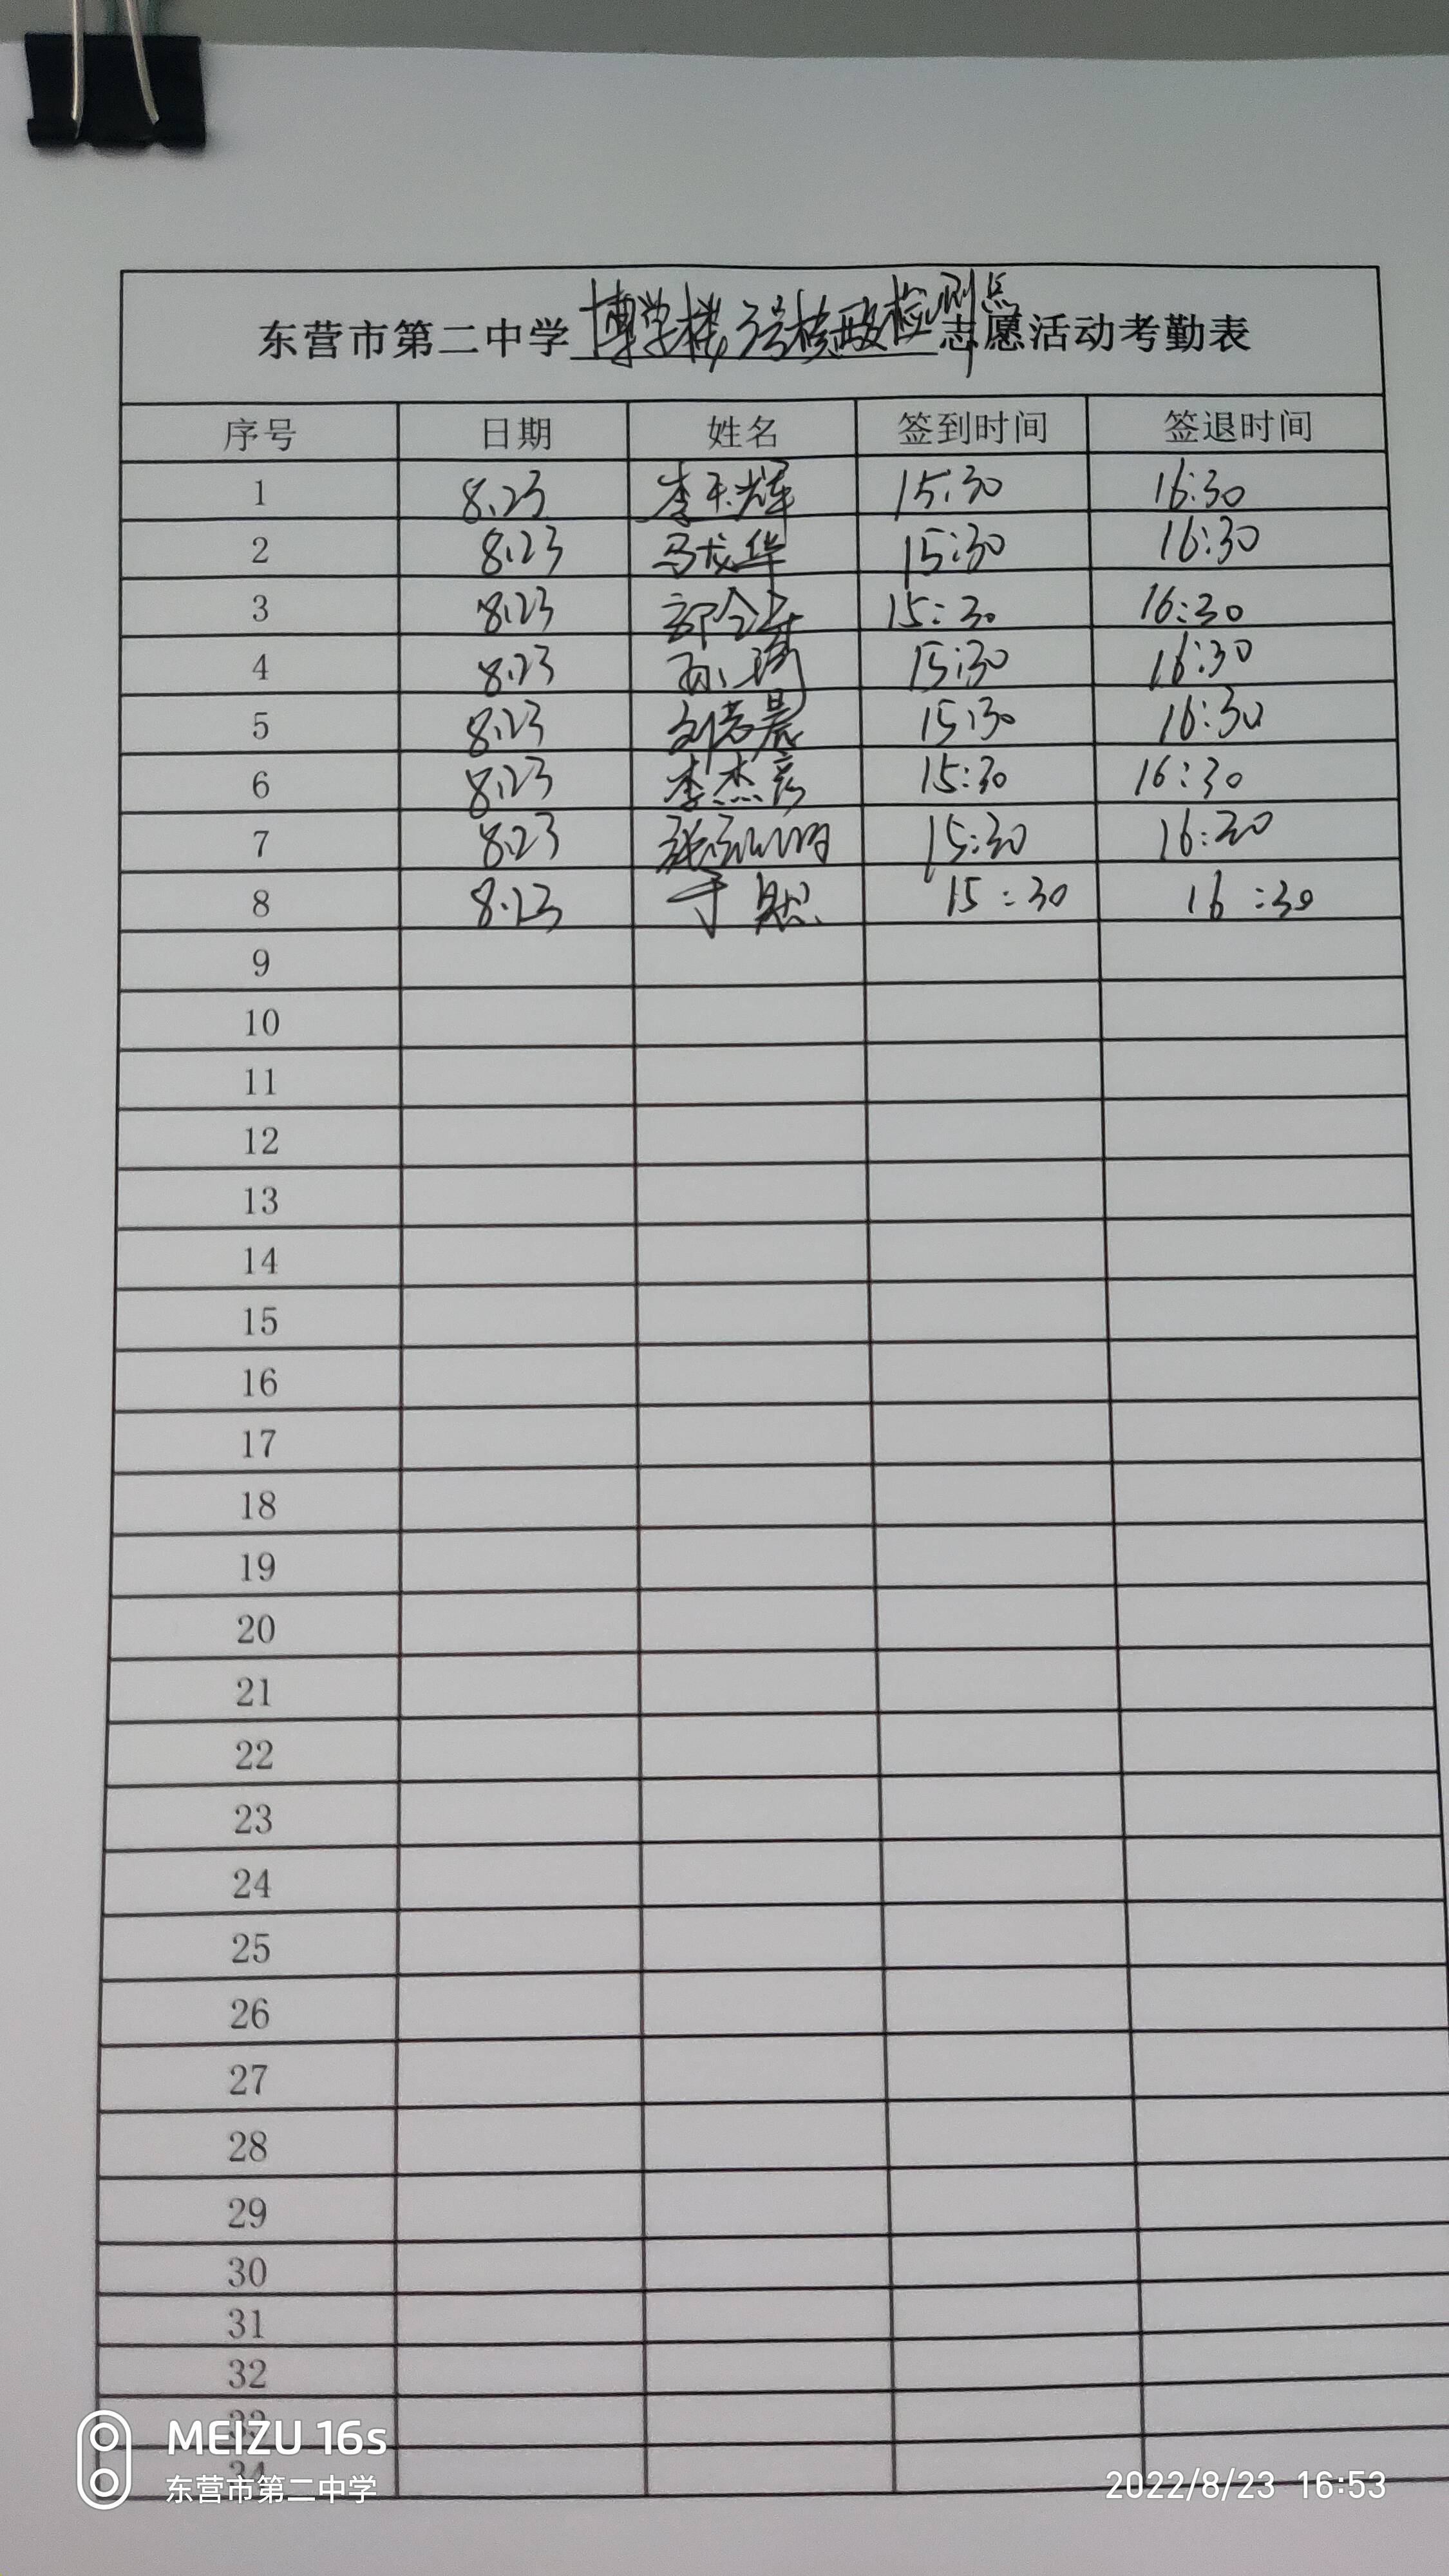 东营市第二中学博学楼3号核酸检测点志愿活动考勤表
序号 日期 姓名 签到时间 签退时间
1 8.23 李天辉 15:30 16:30
2 8.23 马龙华 15:30 16:30
3 8.23 15:30 16:30
4 8.23 孙琦 15:30 16:30
5 8.23 晨 15:30 16:30
6 8.23 李杰彦 15:30 16:30
7 8.23 张 15:30 16:30
8 8.23 于 15:30 16:30
9
10
11
12
13
14
15
16
17
18
19
20
21
22
23
24
25
26
27
28
29
30
31
32
33
34
MEIZU 16s
东营市第二中学
2022/8/23 16:53